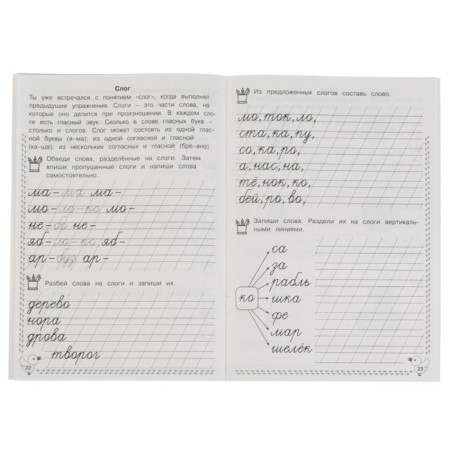 Слог
Ты уже встречался с понятием «слог», когда выполнял
предыдущие упражнения. Слоги – это части слова, на
которые оно делится при произношении. В каждом сло-
ге есть гласный звук. Сколько в слове гласных букв –
столько и слогов. Слог может состоять из одной глас-
ной буквы (я-ма); из одной согласной и гласной
(ка-ша); из нескольких согласных и гласной (бре-вно).
Обведи слова, разделённые на слоги. Затем
впиши пропущенные слоги и напиши слова
самостоятельно.
ма – ма ма –
мо – ло – ко мо –
не – бо не –
яб – ло – ко яб –
ар – буз ар –
Разбей слова на слоги и запиши их.
дерево
нора
дрова
творог
22
Из предложенных слогов составь слово.
мо, ток, ло,
ста, ка, пу,
со, ка, ро,
а, нас, на,
тё, нок, ко,
бей, ро, во,
Запиши слова. Раздели их на слоги вертикаль-
ными линиями.
са
за
рабль
ко шка
фе
мар
шелёк
23